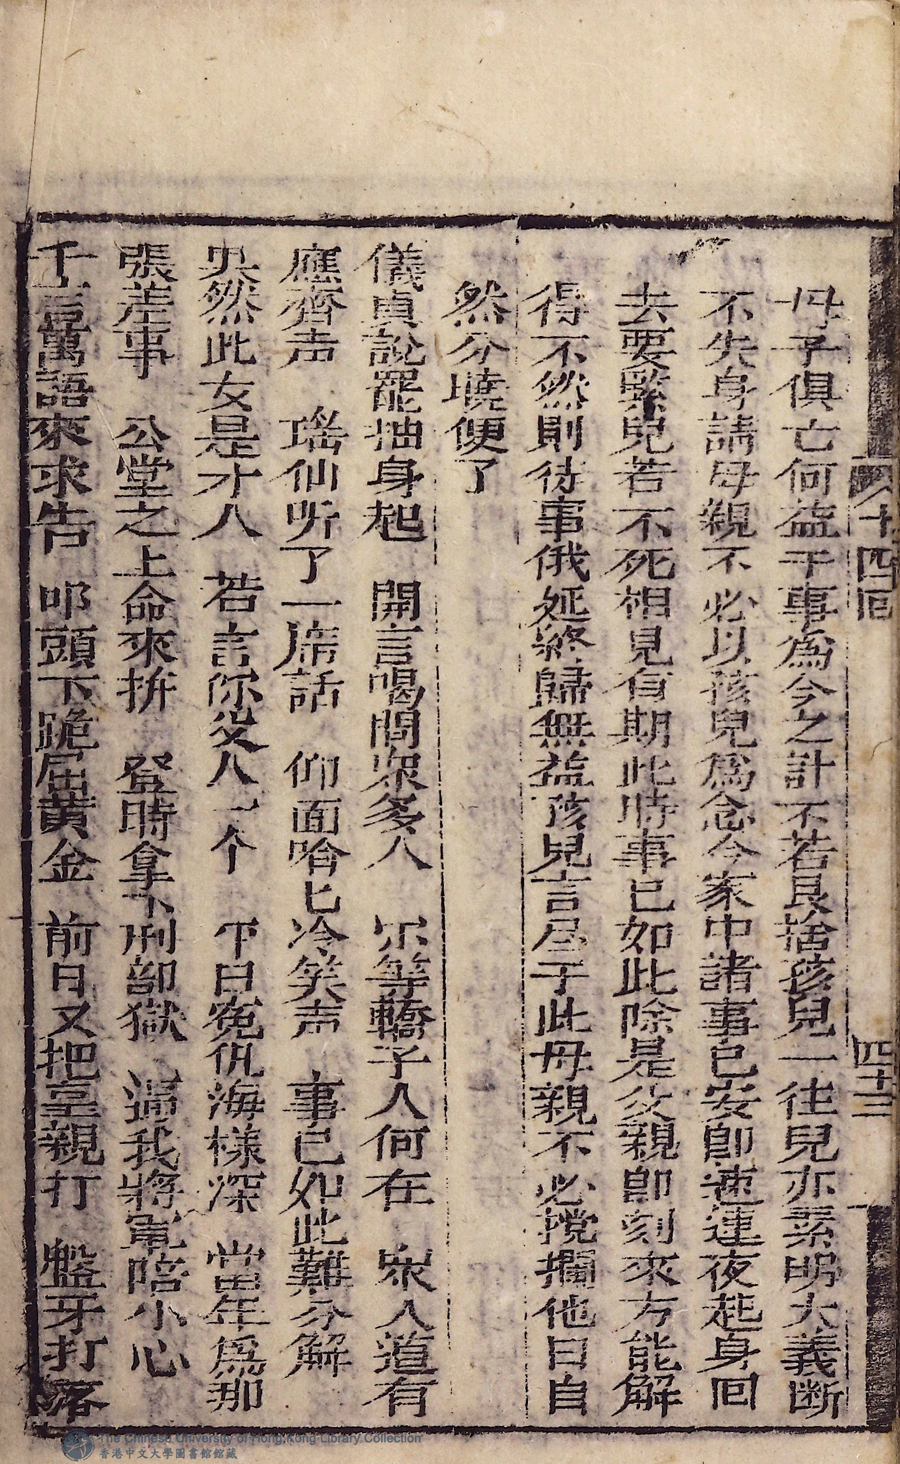 十四回
四十三
母子俱亡何益于事爲今之計不若艮捨孩兒一往兒亦素明大義断
不失身請母親不必以孩兒爲念今家中諸事已安即速連夜起身回
去要緊兒若不死相見有期此時事已如此除是父親即刻來方能解
得不然則待事俄延終歸無益孩兒言尽于此母親不必攪擱他日自
然分曉便了
儀貞說罷抽身起 開言喝問衆多人 尔等轎子人何在 衆人道有
應齊声 瑤仙听了一席話 仰面哈匕冷笑声 事已如此難分解
果然此女是才人 若言你父人一个 平日冤仇海樣深 當年爲那
張差事 公堂之上命來拚 登時拿下刑部獄 逼我將軍陪小心
千言萬語來求告 叩頭下跪屈黄金 前日又把皇親打 盤牙打落
The Chinese University of Hong Kong Library Collection
香港中文大學圖書館館藏